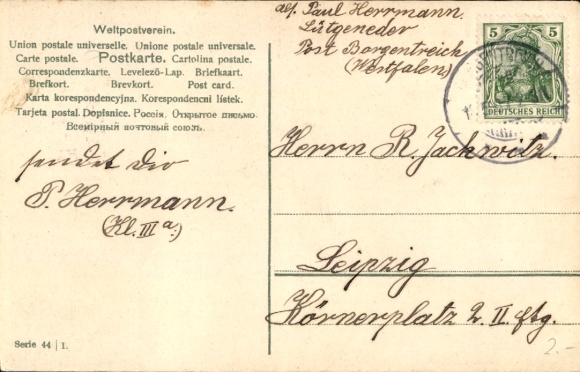 Weltpostverein.
Union postale universelle. Unione postale universale.
Carte postale. Postkarte. Cartolina postale.
Correspondenzkarte. Levelező-Lap. Briefkaart.
Brefkort. Brevkort. Post card.
Karta korespondencyjna. Korespondenční lístek.
Tarjeta postal. Dopisnice. Россія. Открытое письмо.
Всемірный почтовый союзъ.
abs. Paul Herrmann.
Lütgeneder
Post Borgentreich
(Westfalen)
5 5
DEUTSCHES REICH
sendet Dir
P. Herrmann.
(Kl. III a.)
Herrn R. Jackwitz.
Leipzig
Körnerplatz 2. II. Etg.
Serie 44 | 1.
2.-